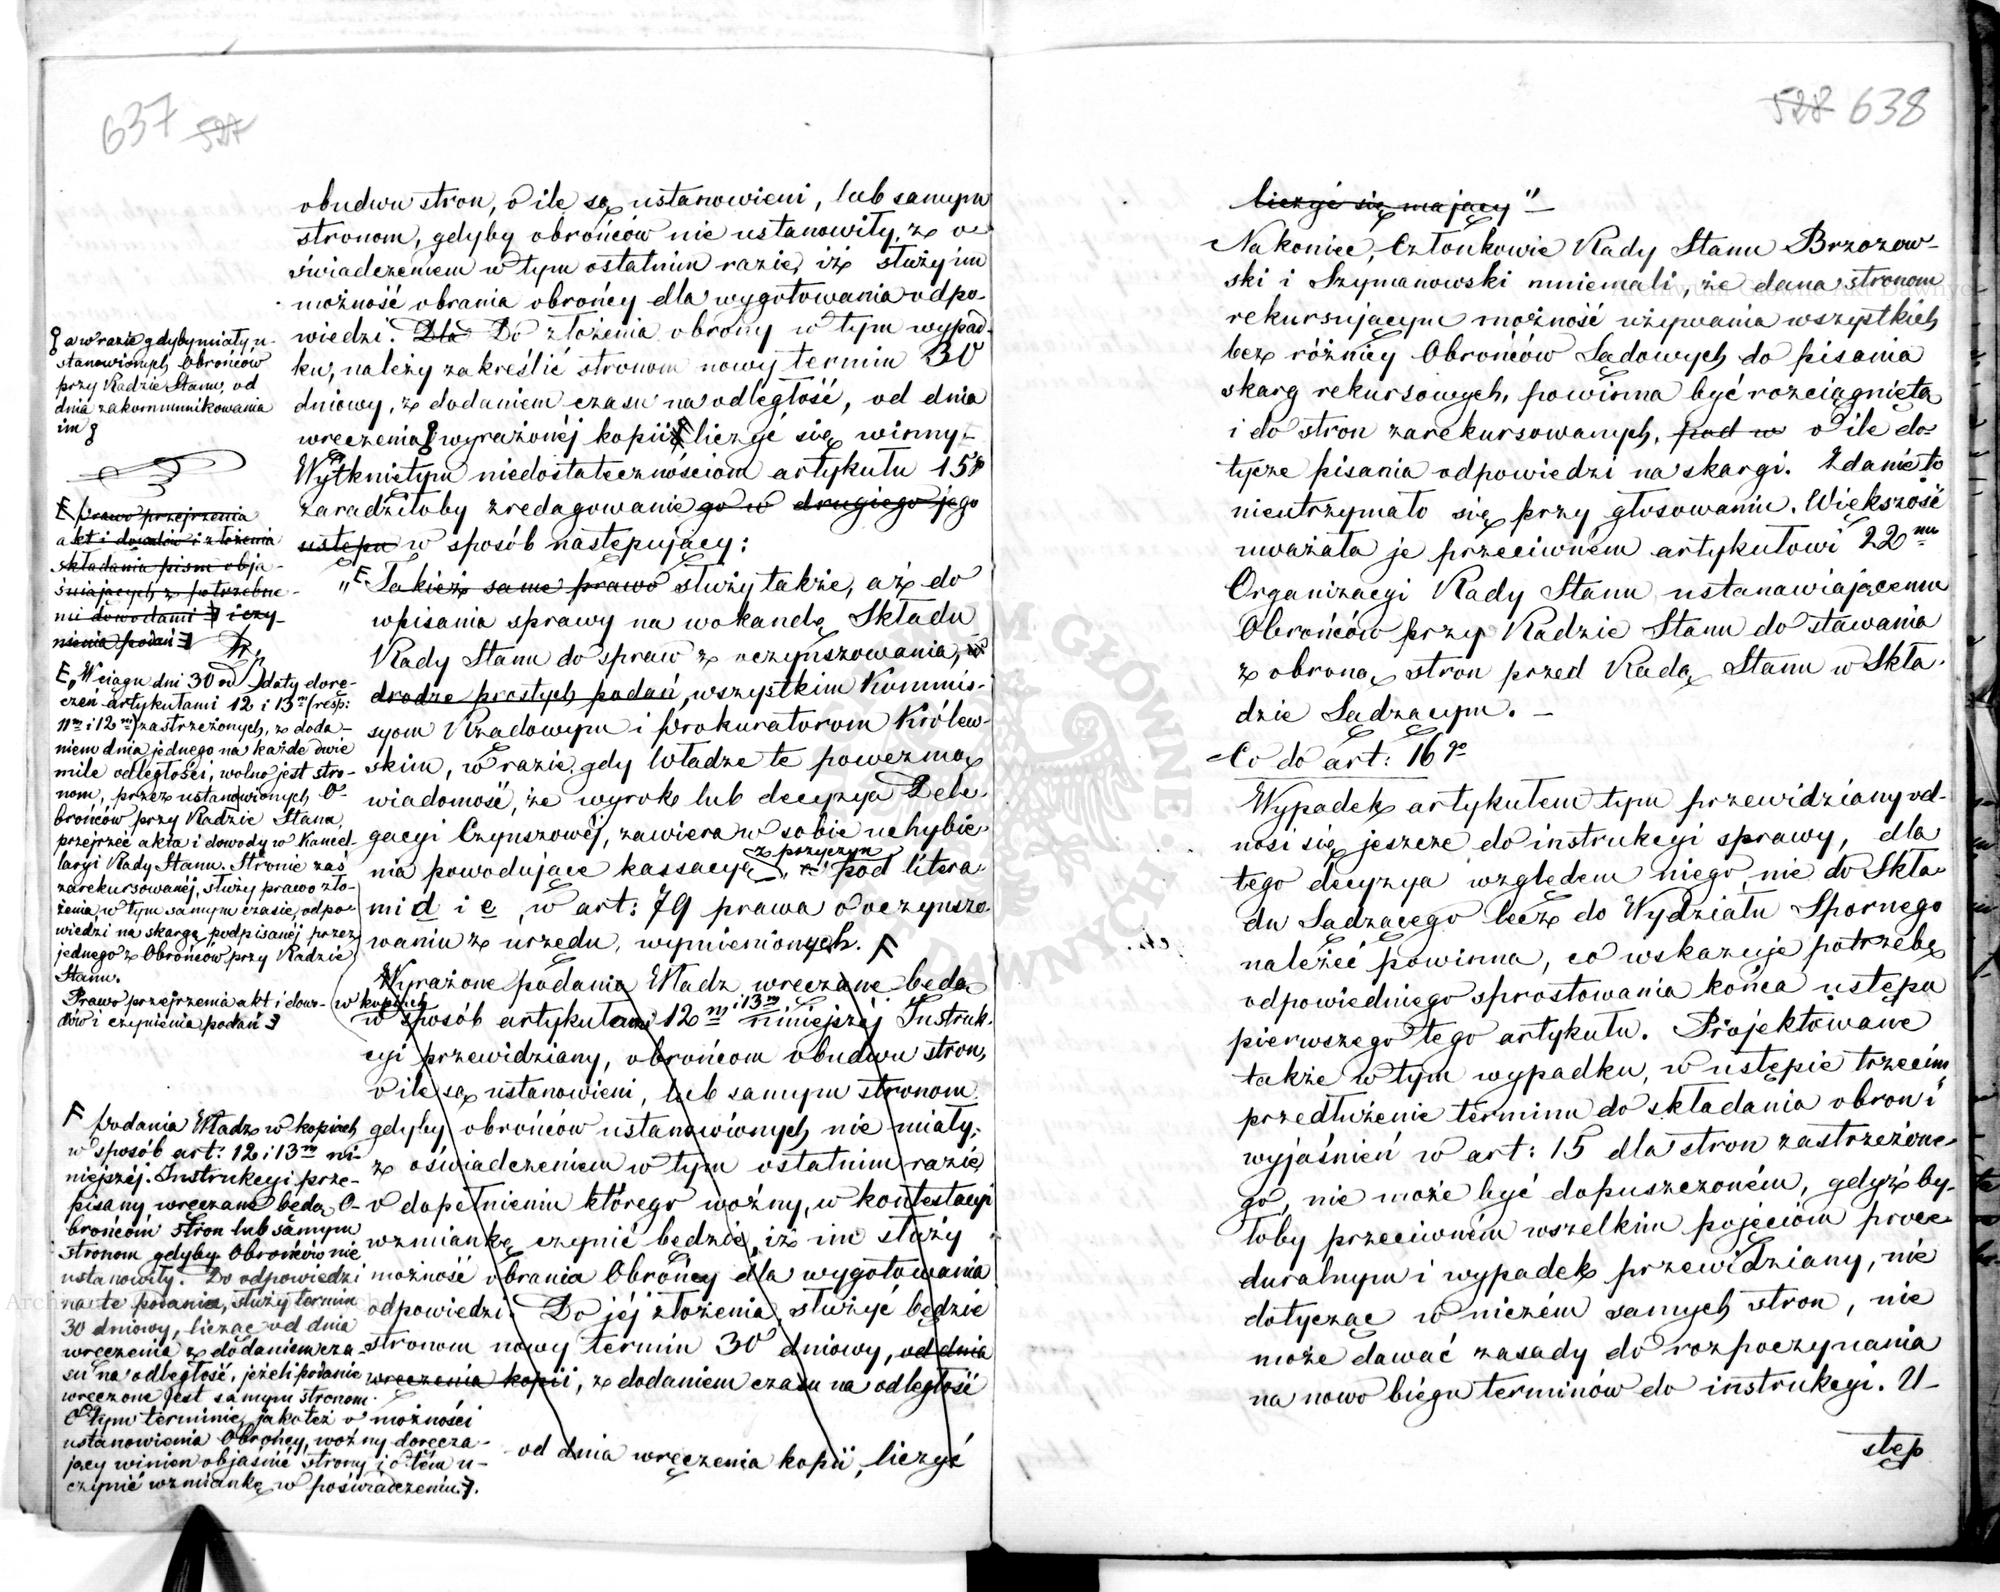 637 527
obudwu stron, o ile są ustanowieni, lub samym
stronom, gdyby obrońców nie ustanowiły, z o-
świadczeniem w tym ostatnim razie, iż służy im
możność obrania obrońcy dla wygotowania odpo-
wiedzi. Dla Do złożenia obrony w tym wypad-
ku, należy zakreślić stronom nowy termin 30
dniowy, z dodaniem czasu na odległość, od dnia
wręczenia wyrażonéj kopii liczyć się winny.
Wytkniętym niedostatecznościom artykułu 15º
zaradziłoby zredagowanie go w drugiego jego
ustępu w sposób następujący:
„E Takież same prawo służy także, aż do
wpisania sprawy na wokandę Składu
Rady Stanu do spraw z oczynszowania, w
drodze prostych podań, wszystkim Kommis-
syom Rządowym i Prokuratorom Królew-
skim, w razie gdy Władze te powezmą
wiadomość, że wyrok lub decyzya Dele-
gacyi Czynszowéj, zawiera w sobie uchybie-
nia powodujące kassacyę z przyczyn pod litera-
mi d i e, w art: 79 prawa o oczynszo-
waniu z urzędu, wymienionych. F
Wyrażone podania Władz wręczane będą
w kopiach
w sposób artykułami 12m i 13m niniejszéj Instruk-
cyi przewidziany, obrońcom obudwu stron,
o ile są ustanowieni, lub samym stronom
gdyby obrońców ustanowionych nie miały,
z oświadczeniem w tym ostatnim razie
o dopełnieniu którego woźny, w kontestacyi
wzmiankę czynić będzie, iż im służy
możność obrania Obrońcy dla wygotowania
odpowiedzi. Do jéj złożenia, służyć będzie
stronom nowy termin 30 dniowy, od dnia
wręczenia kopii, z dodaniem czasu na odległość
od dnia wręczenia kopii, liczyć
a w razie gdyby miały u-
stanowionych Obrońców
przy Radzie Stanu, od
dnia zakommunikowania
im
E Prawo przejrzenia
akt i dowodów i złożenia
składania pism obja-
śniających z potrzebne-
mi dowodami i czy-
nienia podań
E „W ciągu dni 30 od daty dorę-
czeń artykułami 12 i 13m (resp:
11m i 12m) zastrzeżonych, z doda-
niem dnia jednego na każde dwie
mile odległości, wolno jest stro-
nom, przez ustanowionych O-
brońców przy Radzie Stanu,
przejrzeć akta i dowody w Kancel-
laryi Rady Stanu. Stronie zaś
zarekursowanéj, służy prawo zło-
żenia w tym samym czasie, odpo-
wiedzi na skargę, podpisanéj przez
jednego z Obrońców przy Radzie
Stanu.
Prawo przejrzenia akt i dowo-
dów i czynienia podań
F Podania Władz w kopiach
w sposób art: 12 i 13m ni-
niejszéj Instrukcyi prze-
pisany wręczane będą O-
brońcom stron lub samym
stronom gdyby Obrońców nie
ustanowiły. Do odpowiedzi
na te podania, służy termin
30 dniowy, licząc od dnia
wręczenia z dodaniem cza-
su na odległość, jeżeli podanie
wręczone jest samym stronom.
O tym terminie, jako też o możności
ustanowienia Obrońcy, woźny doręcza-
jący winien objaśnić strony i o tém u-
czynić wzmiankę w poświadczeniu.
528 638
liczyć się mający”—
Nakoniec, Członkowie Rady Stanu Brzozow-
ski i Szymanowski mniemali, że dana stronom
rekursującym możność używania wszystkich
bez różnicy Obrońców Sądowych do pisania
skarg rekursowych, powinna być rozciągniętą
i do stron zarekursowanych, pod w o ile do-
tycze pisania odpowiedzi na skargi. Zdanie to
nieutrzymało się przy głosowaniu. Większość
uważała je przeciwném artykułowi 22mu
Organizacyi Rady Stanu ustanawiającemu
Obrońców przy Radzie Stanu do stawania
z obroną stron przed Radą Stanu w Skła-
dzie Sądzącym. —
Co do art: 16go
Wypadek artykułem tym przewidziany od-
nosi się jeszcze do instrukcyi sprawy, dla
tego decyzya względem niego, nie do Skła-
du Sądzącego lecz do Wydziału Spornego
należeć powinna, co wskazuje potrzebę
odpowiedniego sprostowania końca ustępu
pierwszego tego artykułu. Projektowane
także w tym wypadku, w ustępie trzecim
przedłużenie terminu do składania obron i
wyjaśnień w art: 15 dla stron zastrzeżone-
go, nie może być dopuszczoném, gdyż by-
łoby przeciwném wszelkim pojęciom proce-
duralnym i wypadek przewidziany, nie
dotycząc w niczém samych stron, nie
może dawać zasady do rozpoczynania
na nowo biegu terminów do instrukcyi. U-
stęp
ARCHIWUM GŁÓWNE AKT DAWNYCH